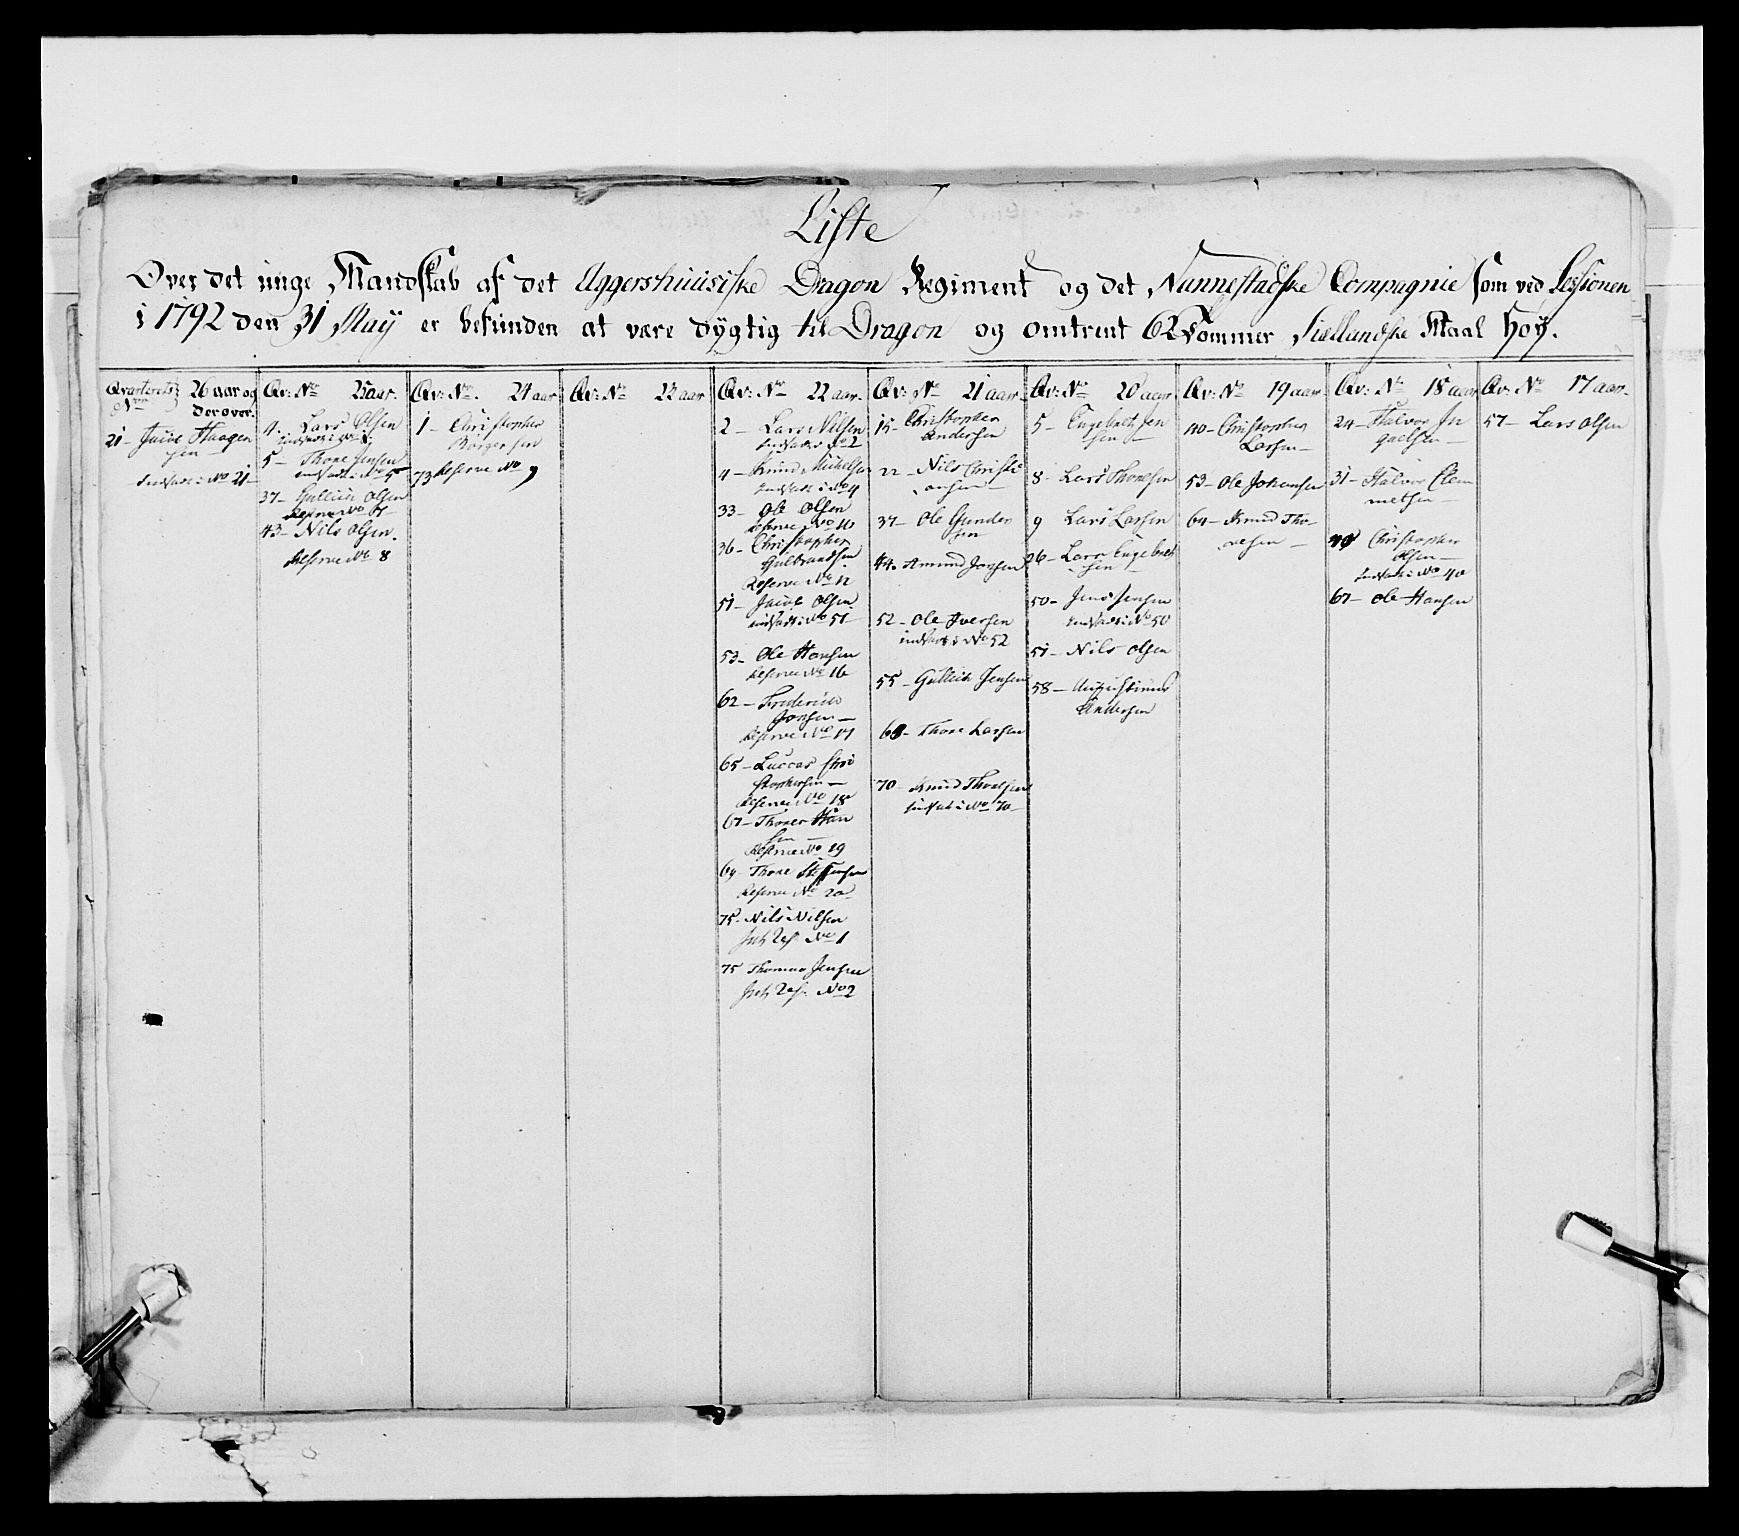 Liste
Over det unge Mandskab af det Aggershuusiske Dragon Regiment og det Nannestadske Compagnie som ved Sessionen
i 1792 den 31 May er befunden at være dygtig til Dragon og omtrent 62 Tommer Siællandske Maal høy.
Qvarterets No 26 aar og
derover.
21 - Jacob Haagen
sen
indsadt i No 21
Qv: No 25 aar.
4. Lars Olsen
indsadt i No
5 - Thore Jensen
indsadt i No 5
37 - Gullich Olsen
Reserve No
43 - Nils Olsen.
Reserve No 8
Qv: No. 24 aar
1 - Christopher
Børgersen
73 Reserve No 9
Qv: No 23 aar
Qv: No 22 aar.
2 - Lars Nilsen
indsadt No 2
4 - Amund Michelsen
indsadt i No 4
33 - Ole Olsen
Reserve No 10
36 - Christopher
Gulbrandsen
Reserve No 12
51 - Jacob Olsen
indsadt i No 51
53 - Ole Hansen
Reserve No 16
62 - Frederich
Jonsen
Reserve No 17
65 - Luccas Chri
stophersen
Reserve No 18
67 - Thores Han
sen
Reserve No 19
69 - Thore Steffensen
Reserve No 20
75 - Nils Nilsen
No 1
75 Thomas Jensen
No 2
Qv: No 21 aar
15 - Christopher
Andersen
22 - Nils Christi
ansen
37 - Ole Gunder
sen
44. Amund Jonsen
52 - Ole Iversen
indsadt i No 52
55 - Gullich Jensen
68 - Thore Larsen
70 - Amund Thoresen
indsadt i No 70
Qv: No 20 aar
5 - Engebret Jen
sen
8 - Lars Thoresen
9 Lars Larsen
26 - Lars Engebret
sen
50 - Jens Jensen
indsadt i No 50
51 - Nils Olsen
58 - Augustinus
Andersen
Qv: No 19 aar
40 - Christopher
Larsen
53 - Ole Johansen
64 - Amund Tho-
resen
Qv: No 18 aar
24 - Halvor In
gaelsen
31 - Halvor Clem
metsen
40 Christopher
Olsen
indsadt i No 40
67 - Ole Hansen
Qv: No 17 aar
57 - Lars Olsen